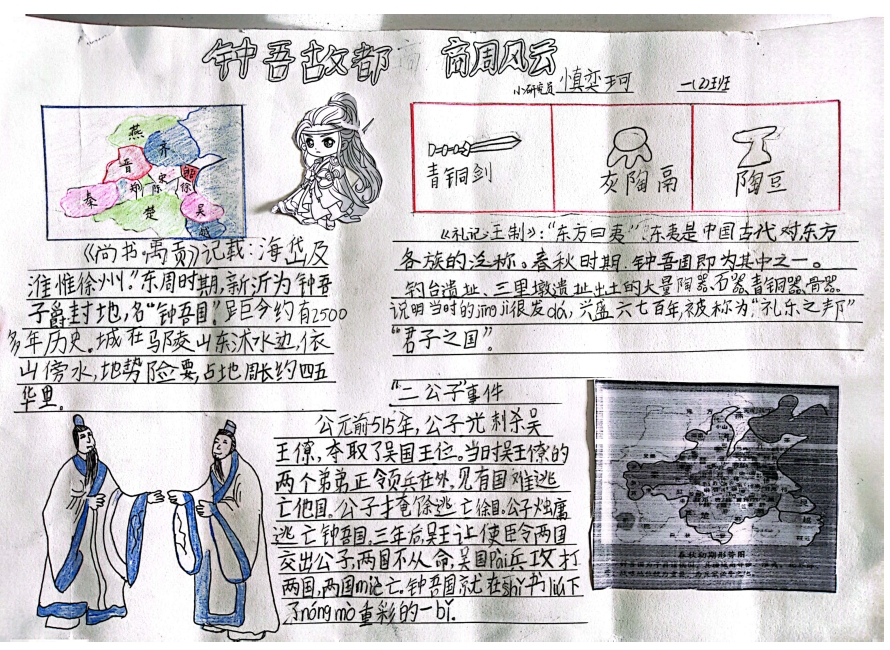 钟吾故都 商周风云
小研究员 慎奕珂 一(2)班
燕
齐
晋
秦
郑
宋
陈
徐
楚
吴
越
青铜剑
灰陶鬲
陶豆
《尚书·禹贡》记载:海岱及
淮惟徐州。"东周时期,新沂为钟吾
子爵封地,名"钟吾国",距今约有2500
多年历史。城在马陵山东沭水边,依
山傍水,地势险要,占地周长约四五
华里。
《礼记·王制》:"东方曰夷"。东夷是中国古代对东方
各族的泛称。春秋时期,钟吾国即为其中之一。
钓台遗址、三里墩遗址出土的大量陶器、石器、青铜器、骨器
说明当时的jīng jì很发dá,兴盛六七百年,被称为"礼乐之邦"
"君子之国"。
"二公子"事件
公元前515年,公子光刺杀吴
王僚,夺取了吴国王位。当时吴王僚的
两个弟弟正领兵在外,见有国难逃
亡他国。公子掩馀逃亡徐国,公子烛庸
逃亡钟吾国,三年后,吴王让使臣令两国
交出公子,两国不从命,吴国派兵攻打
两国,两国miè亡。钟吾国就在shǐ书liú下
了nóng mò重彩的一bǐ.
春秋初期形势图